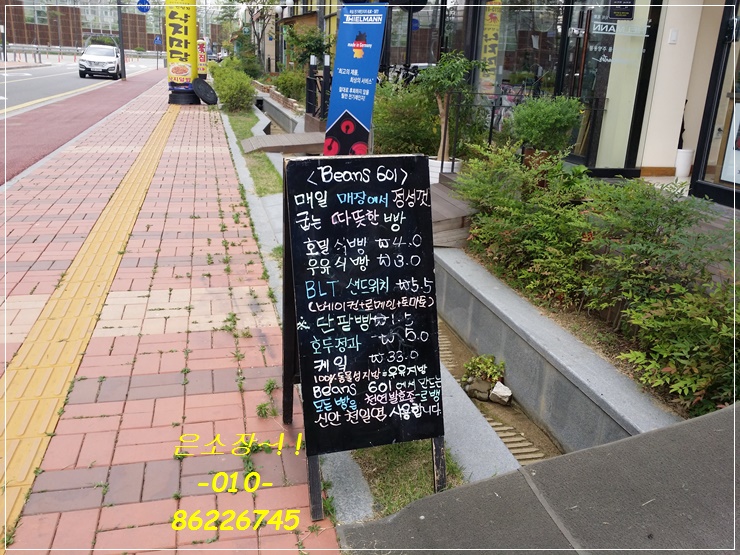 낙지마당
THIELMANN
made in Germany
"최고의 제품,
최상의 서비스"
<Beans 601>
매일 매장에서 정성껏
굽는 따뜻한 빵
호밀 식빵 ₩4.0
우유 식빵 ₩3.0
BLT 샌드위치 ₩5.5
(베이컨+로메인+토마토)
※ 단팥빵 ₩1.5
호두정과 ₩5.0
케잌 ₩33.0
100% 동물성지방=우유지방
Beans 601에서 만드는
모든 빵은 천연발효종-르방
신안 천일염 사용합니다
은소장~!!
-010-
86226745